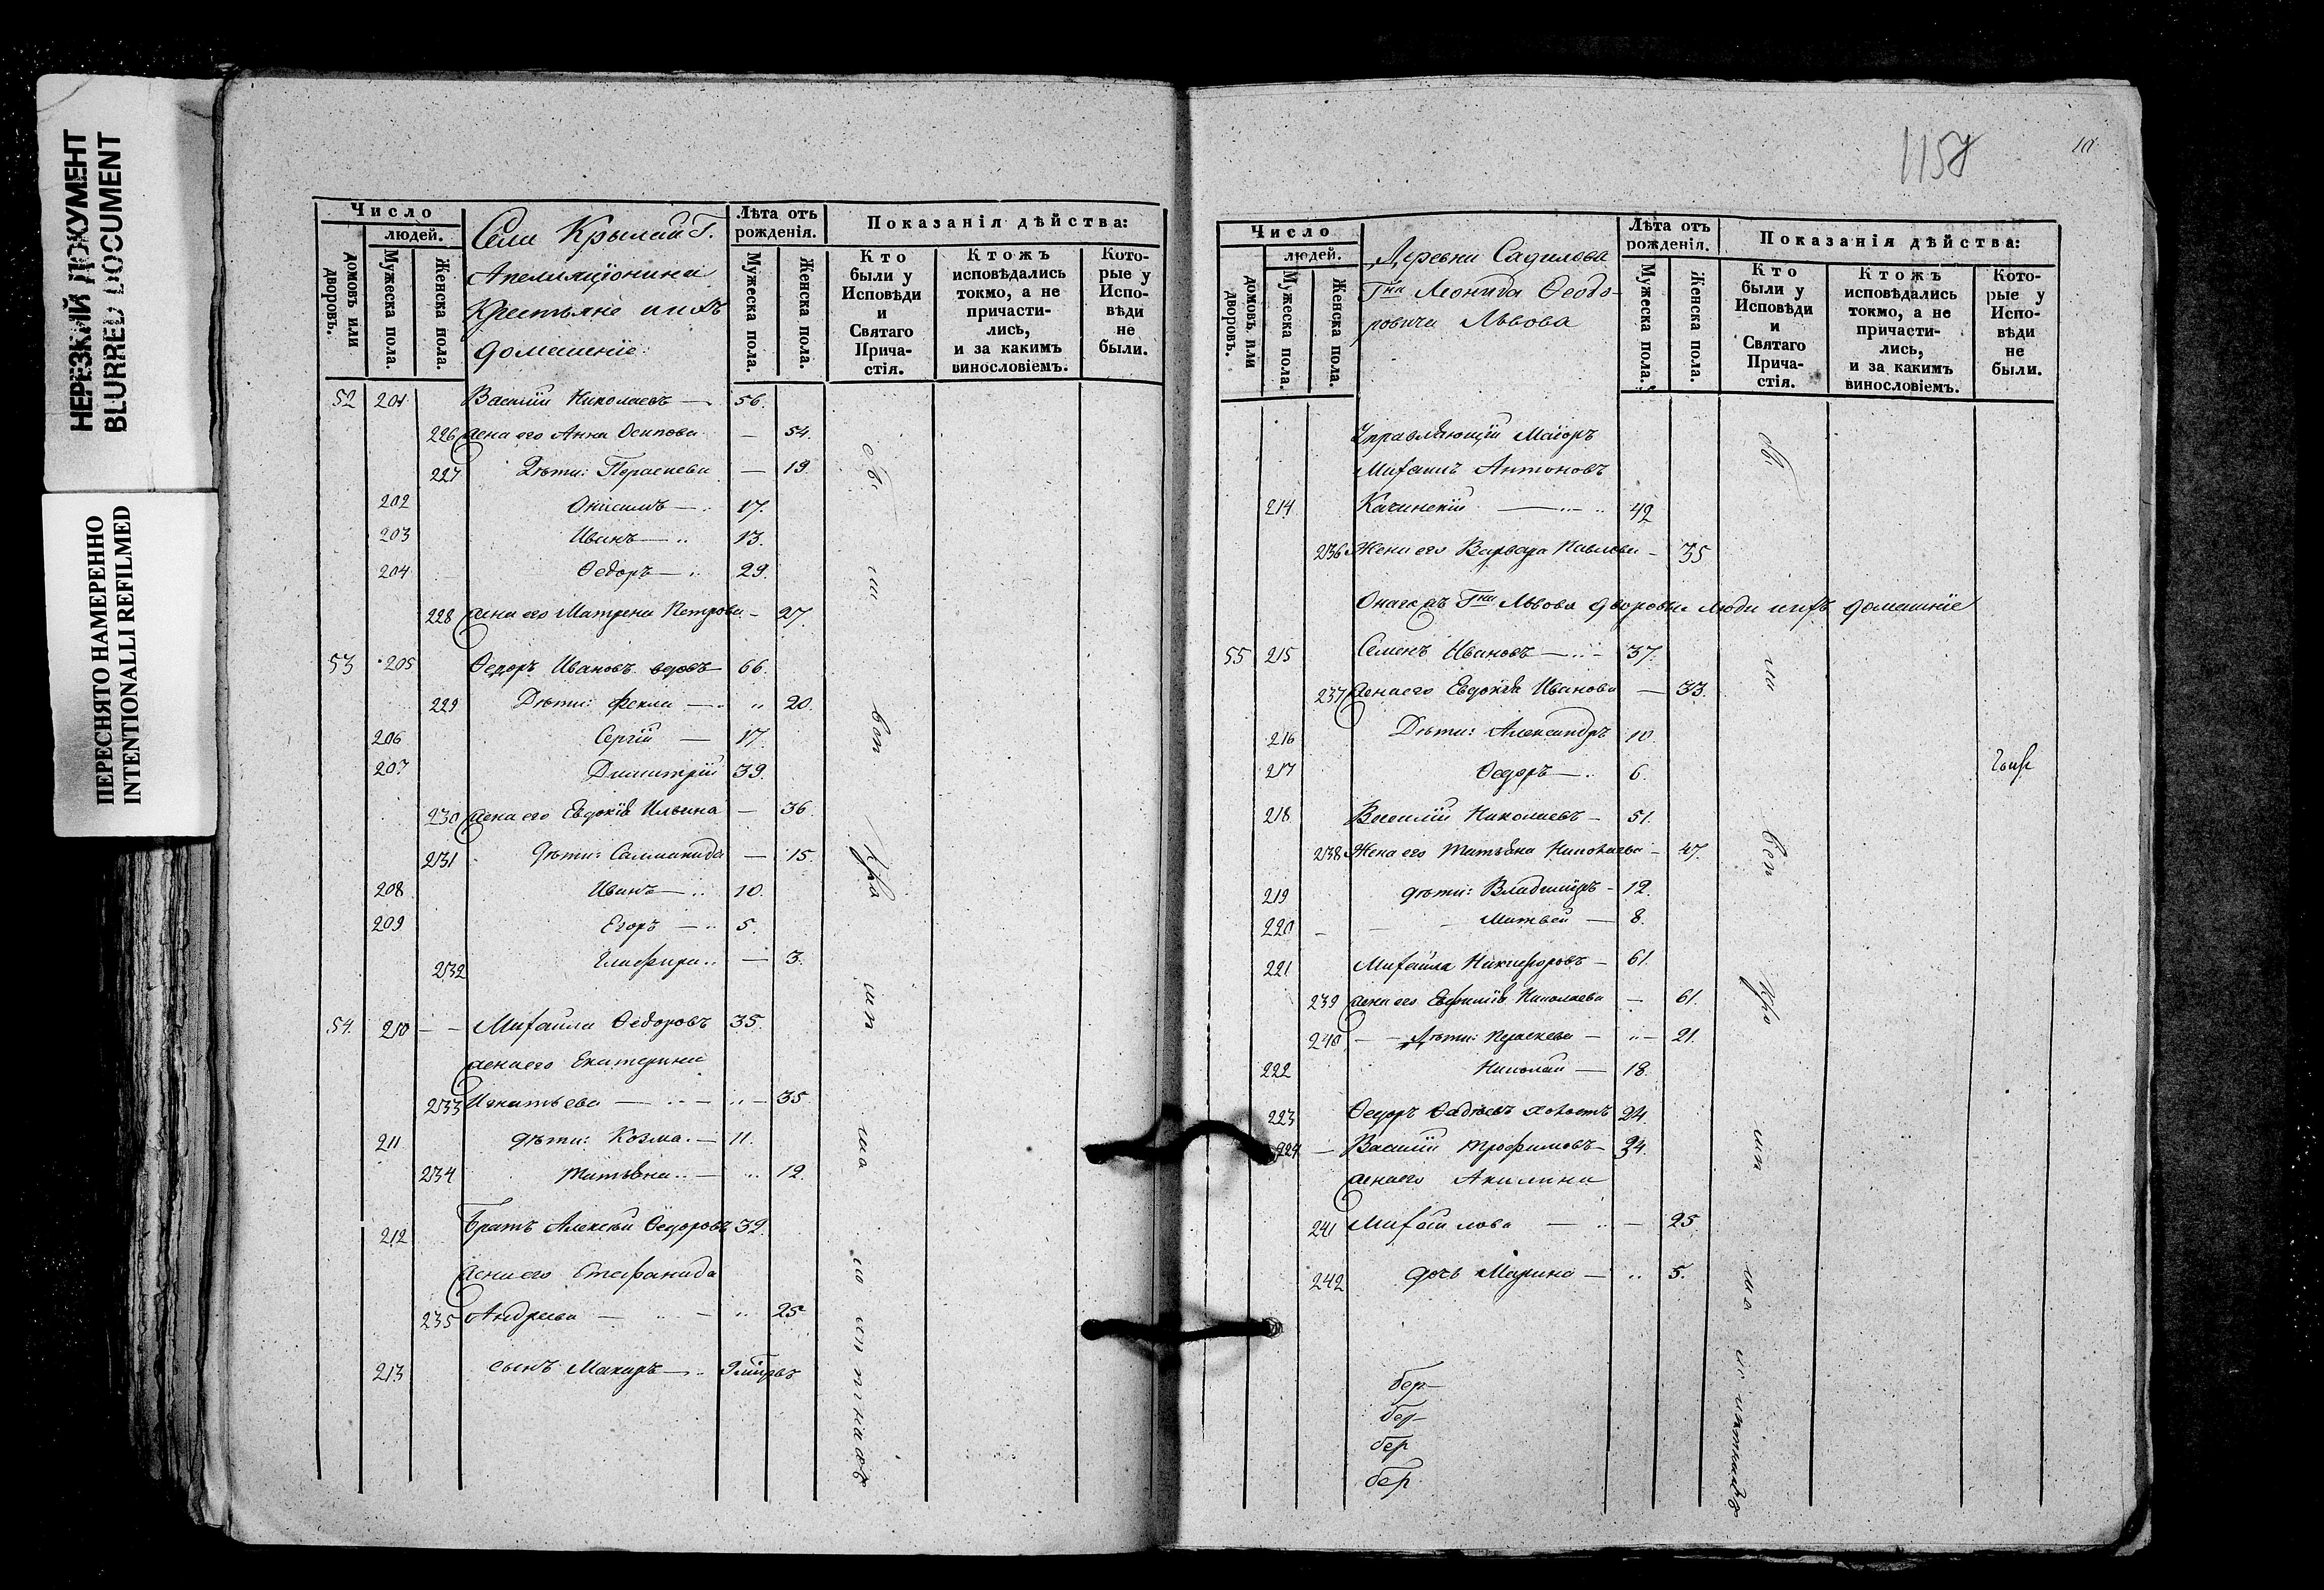 НЕРЕЗКИЙ ДОКУМЕНТ
BLURRED DOCUMENT
ПЕРЕСНЯТО НАМЕРЕННО
INTENTIONALLI REFILMED
Число
людей.
домовъ или дворовъ.
Мужеска пола.
Женска пола.
Села Крылай Г.
Крестьяне и ихъ
домашніе
Лѣта отъ рожденія.
Мужеска пола.
Женска пола.
Показанія дѣйства:
Кто были у Исповѣди и Святаго Прича-стія.
Ктожъ исповѣдались токмо, а не причасти-лись, и за какимъ винословіемъ.
Кото-рые у Испо-вѣди не были.
52 201 Василій Николаевъ — 56.
226 Жена его Анна Осипова — 54.
227 Дѣти: Параскева — 19
202 Онисимъ — 17.
203 Иванъ — 13.
204 Ѳедоръ — 29.
228 Жена его Матрена Петрова — 27.
53 205 Ѳедоръ Ивановъ вдовъ 66.
229 Дѣти: Фекла — „ 20.
206 Сергій — 17.
207 Димитрій 39.
230 Жена его Евдокія Ильина — 36
231 Дѣти: — 15.
208 Иванъ — 10.
209 Егоръ — 5.
232 Глафира — 3.
54. 210 — Михайла Ѳедоровъ 35.
Жена его Екатерина
233 Игнатьева — „ — 35
211 дѣти: Козма — 11.
234 Татьяна — „ 12.
212 Братъ Алексѣй Ѳедоровъ 32.
Жена его Стефанида
235 Андреева — „ 25
213 сынъ Макаръ —
1158
10
Число
людей.
домовъ или дворовъ.
Мужеска пола.
Женска пола.
Деревни Садилова
Гна Леонида Ѳеодо-
ровича Львова
Лѣта отъ рожденія.
Мужеска пола.
Женска пола.
Показанія дѣйства:
Кто были у Исповѣди и Святаго Прича-стія.
Ктожъ исповѣдались токмо, а не причасти-лись, и за какимъ винословіемъ.
Кото-рые у Испо-вѣди не были.
Управляющій Маіоръ
Михаилъ Антоновъ
214 Качинскій — 42
236 Жена его Варвара Павлова — 35
Гна Львова дворовые люди и ихъ домашніе
55 215 Семенъ Ивановъ — 37.
237 Жена его Евдокія Иванова — 33.
216 Дѣти: Александръ 10
217 Ѳедоръ — 6.
218 Василій Николаевъ — 51.
238 Жена его Татьяна Николаева — 47.
219 дѣти: Владиміръ — 12.
220 — Матвей — 8.
221 Михайла Никифоровъ — 61.
239 Жена его Евфимія Николаева — 61.
240 — Дѣти: Параскева — „ — 21.
222 Николай — 18.
223 Ѳедоръ Фадѣевъ холостъ 24.
224 — Василій Трофимовъ — 34.
Жена его Акилина
241 Михайлова — 25.
242 дочь Марина — „ 5.
бер
бер
бер
бер